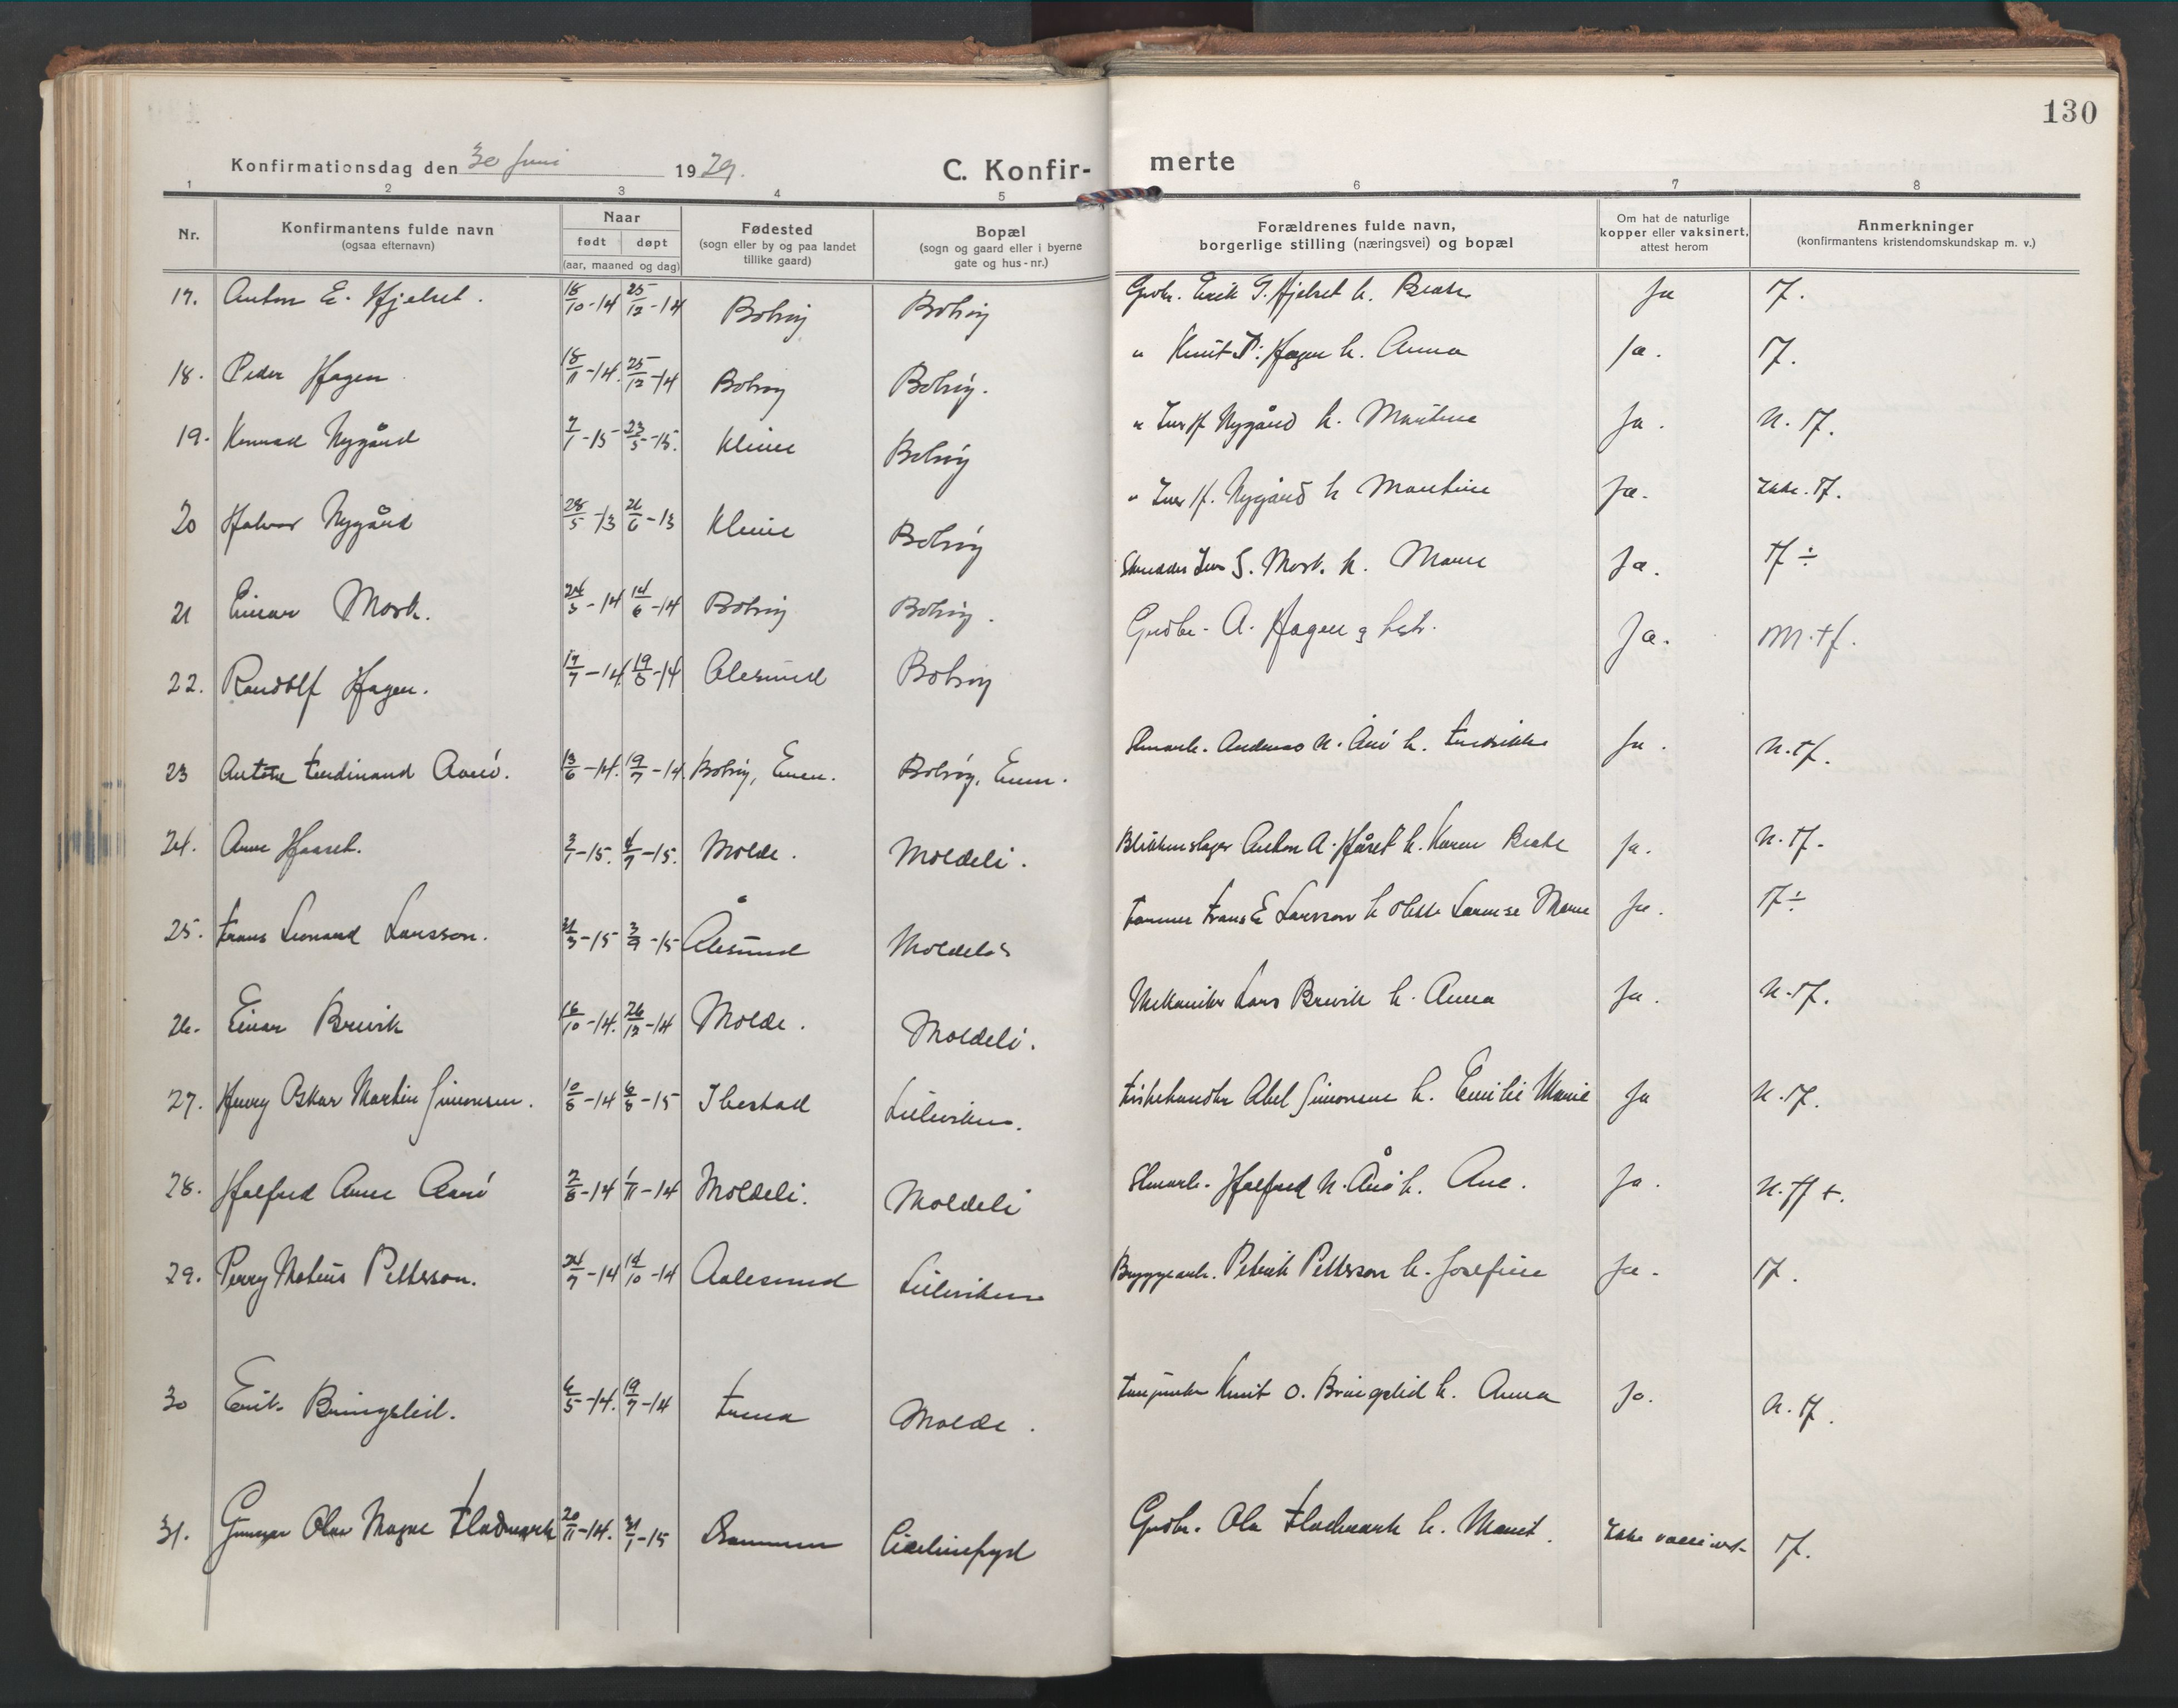 130
Konfirmationsdag den 30 Juni 1929.
C. Konfirmerte
1 2 3 4 5 6 7 8
Nr.
Konfirmantens fulde navn
(ogsaa efternavn)
Naar
født døpt
(aar, maaned og dag)
Fødested
(sogn eller by og paa landet
tillike gaard)
Bopæl
(sogn og gaard eller i byerne
gate og hus-nr.)
Forældrenes fulde navn,
borgerlige stilling (næringsvei) og bopæl
Om hat de naturlige
kopper eller vaksinert,
attest herom
Anmerkninger
(konfirmantens kristendomskundskap m. v.)
17. Anton E. Hjelset. 18/10-14 25/12-14 Bolsøy Bolsøy Grdbr. Erik Hjelset h. Beate Ja Tf.
18. Peder Hagen 18/11-14. 25/12-14 Bolsøy Bolsøy. " Knut P. Hagen h. Anna Ja. Tf.
19. Konrad Nygård 7/1-15 23/5-15. Kleive Bolsøy " Iver H Nygård h. Martine Ja. N. Tf.
20 Halvor Nygård 28/5-13 26/6-13 Kleive Bolsøy " Iver H. Nygård h Martine Ja. Tf.
21 Einar Mork. 24/3-14 14/6-14 Bolsøy Bolsøy. Skredder Iver S. Mork. h. Marie Ja. Tf ÷
22. Randolf Hagen. 17/7-14 Alesund Bolsøy Grdbr. A. Hagen g hstr. Ja. M. tf.
23 Anton Ferdinand Aarø. 13/6-14. 19/7-14. Bolsøy, Bolsøy, Andreas N. Årø h. Fredrikke Ja. N. tf.
24. Arne Haaset. 2/1-15. 4/7-15. Molde. Moldeli. Blikkenslager Anton A. Håset h. Karen Beate Ja. N. Tf.
25. Frans Leonard Larsson. 31/3-15 3/9-15 Ålesund Moldeli Frans E Larsson h Marie Ja. Tf ÷
26. Einar Brevik 16/10-14. 26/12-14 Molde. Moldeli. Mekaniker Lars Brevik h. Anna Ja. N. Tf.
27. Henry Oskar Martin Simonsen. 10/8-14 6/8-15 Ibestad Fiskehandler Abel Simonsen h. Emilie Marie Ja N. Tf.
28. Halfred Arne Aarø 2/8-14 1/11-14 Moldeli. Moldeli Halfred N. Årø h. Ane. Ja. N. Tf +.
29. Perry Mateus Petterson. 24/7-14 14/10-14 Aalesund Bryggearb. Petrik Petterson h. Josefine Ja. Tf.
30 Bringsleid. 6/5-14. 19/7-14 Molde. Knut O. Bringsleid h. Anna Ja. N. Tf.
31. Gunnar Olav Magne Flademark 20/11-14. 31/1-15 Drammen Grdbr. Ola Flademark h. Marit. Ikke Tf.